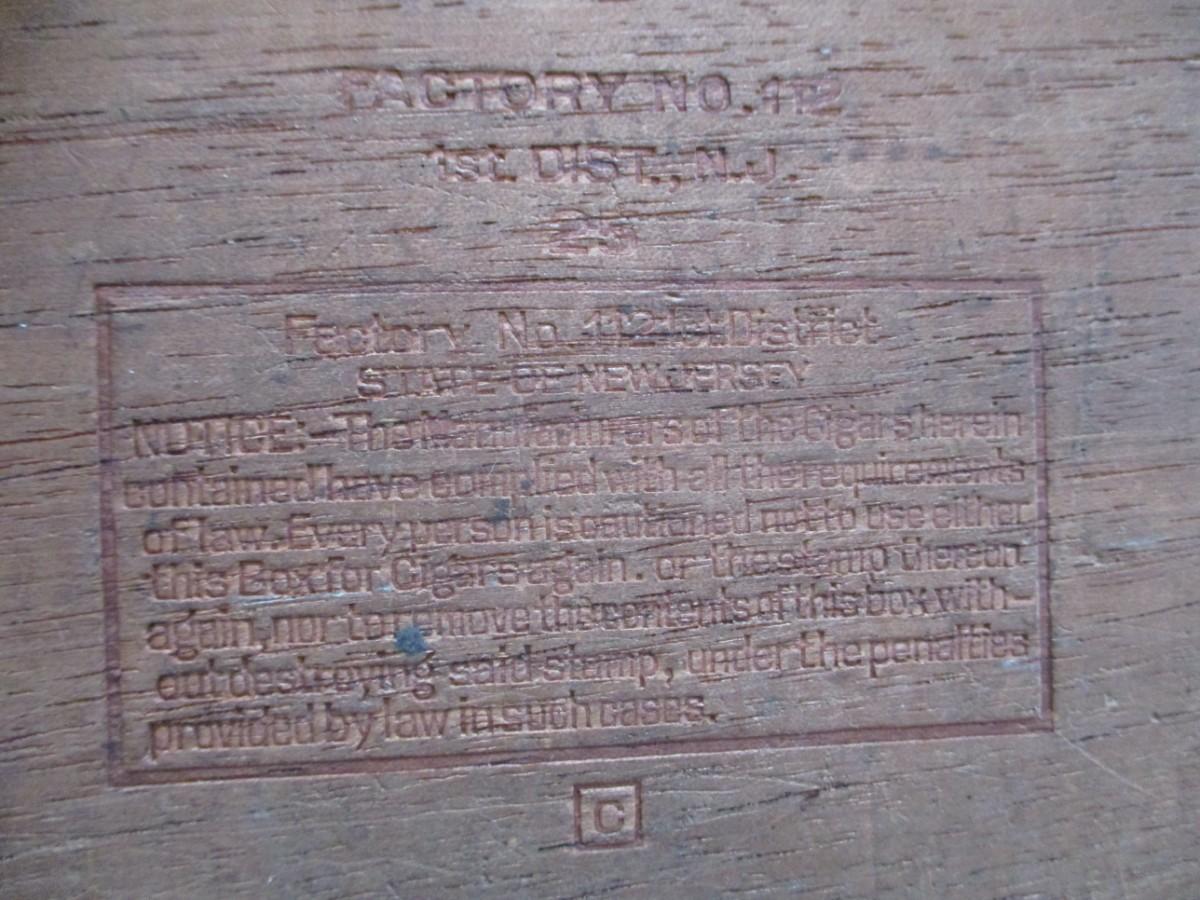 FACTORY NO. 112
1st. DIST., N.J.
25
Factory No. 112 1st. District
STATE OF NEW JERSEY
NOTICE:—The Manufacturers of the Cigars herein
contained have complied with all the requirements
of law. Every person is cautioned not to use either
this Box for Cigars again. or the stamp thereon
again, nor to remove the contents of this box with-
out destroying said stamp, under the penalties
provided by law in such cases.
C